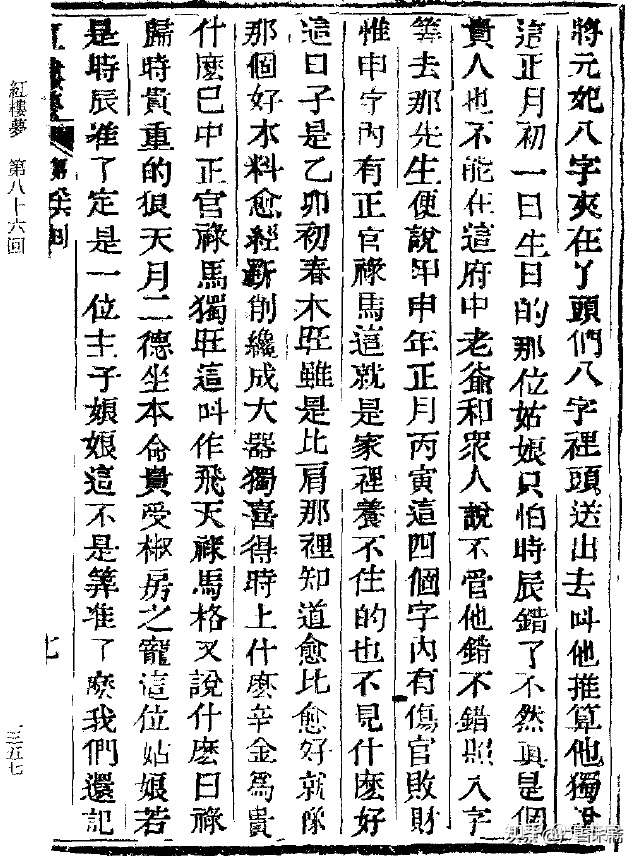 將元妃八字夾在丫頭們八字裡頭送出去叫他推算他獨說
這正月初一日生日的那位姑娘只怕時辰錯了不然真是個
貴人也不能在這府中老爺和眾人說不管他錯不錯照八字
算去那先生便說甲申年正月丙寅這四個字內有傷官敗財
惟申字內有正官祿馬這就是家裡養不住的也不見什麼好
這日子是乙卯初春木旺雖是比肩那裡知道愈比愈好就像
那個好木料愈經斲削纔成大器獨喜得時上什麼辛金為貴
什麼巳中正官祿馬獨旺這叫作飛天祿馬格又說什麼日祿
歸時貴重的狠天月二德坐本命貴受椒房之寵這位姑娘若
是時辰准了定是一位主子娘娘這不是算准了麼我們還記
紅樓夢 第八十六回
七
紅樓夢 第八十六回
一三五七
知乎